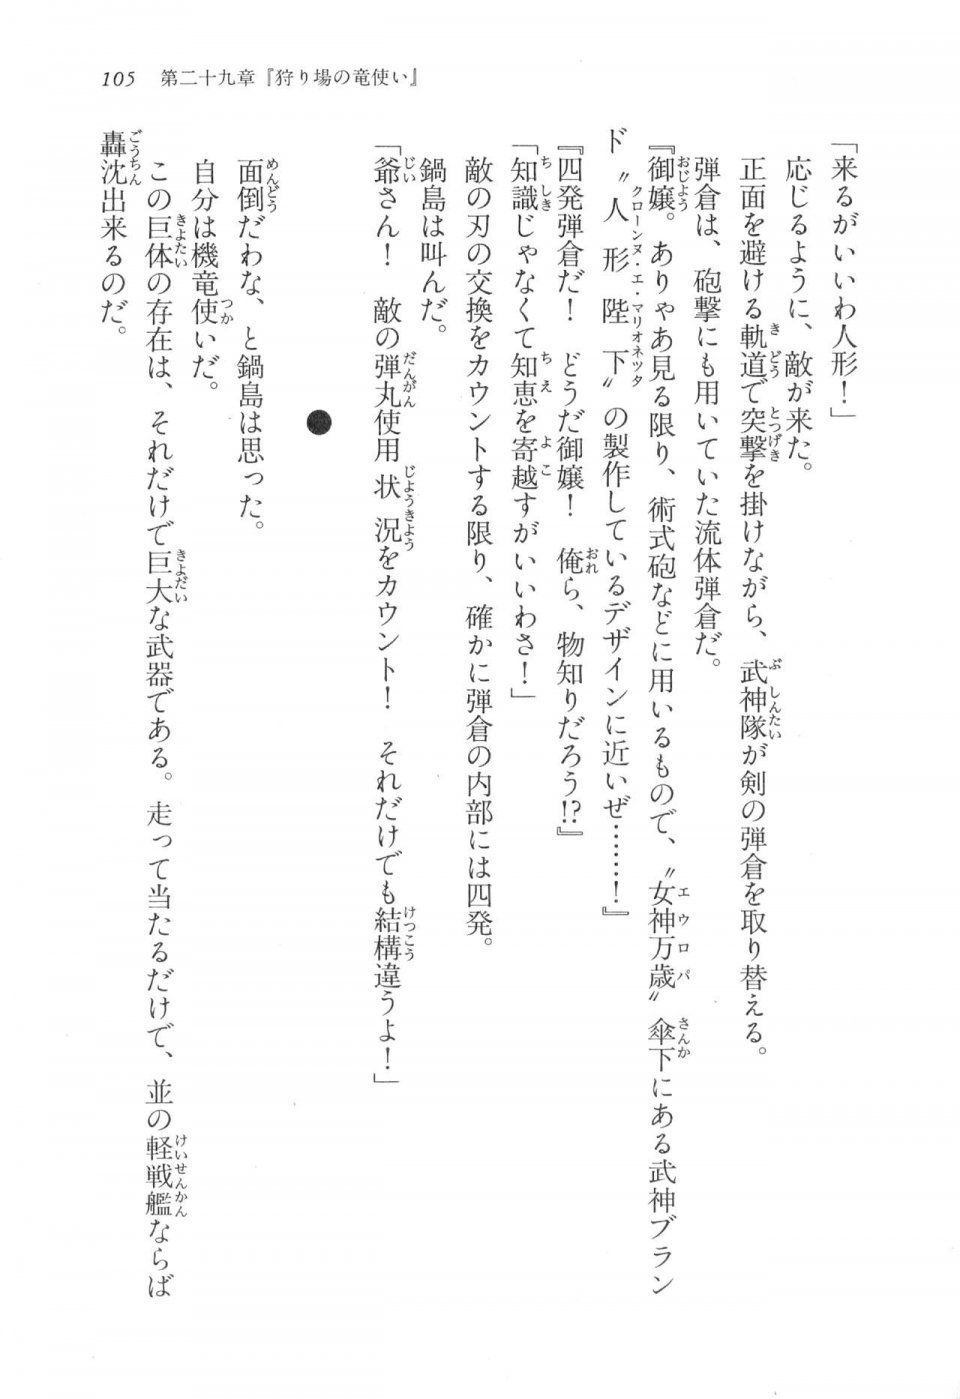 105　第二十九章『狩り場の竜使い』
「来るがいいわ人形！」
応じるように、敵が来た。
正面を避ける軌道で突撃を掛けながら、武神隊が剣の弾倉を取り替える。
弾倉は、砲撃にも用いていた流体弾倉だ。
『御嬢。ありゃあ見る限り、術式砲などに用いるもので、〝女神万歳〟傘下にある武神ブラン
ド〝人形陛下〟の製作しているデザインに近いぜ……！』
『四発弾倉だ！　どうだ御嬢！　俺ら、物知りだろう!?』
「知識じゃなくて知恵を寄越すがいいわさ！」
敵の刃の交換をカウントする限り、確かに弾倉の内部には四発。
鍋島は叫んだ。
「爺さん！　敵の弾丸使用状況をカウント！　それだけでも結構違うよ！」
●
面倒だわな、と鍋島は思った。
自分は機竜使いだ。
この巨体の存在は、それだけで巨大な武器である。走って当たるだけで、並の軽戦艦ならば
轟沈出来るのだ。